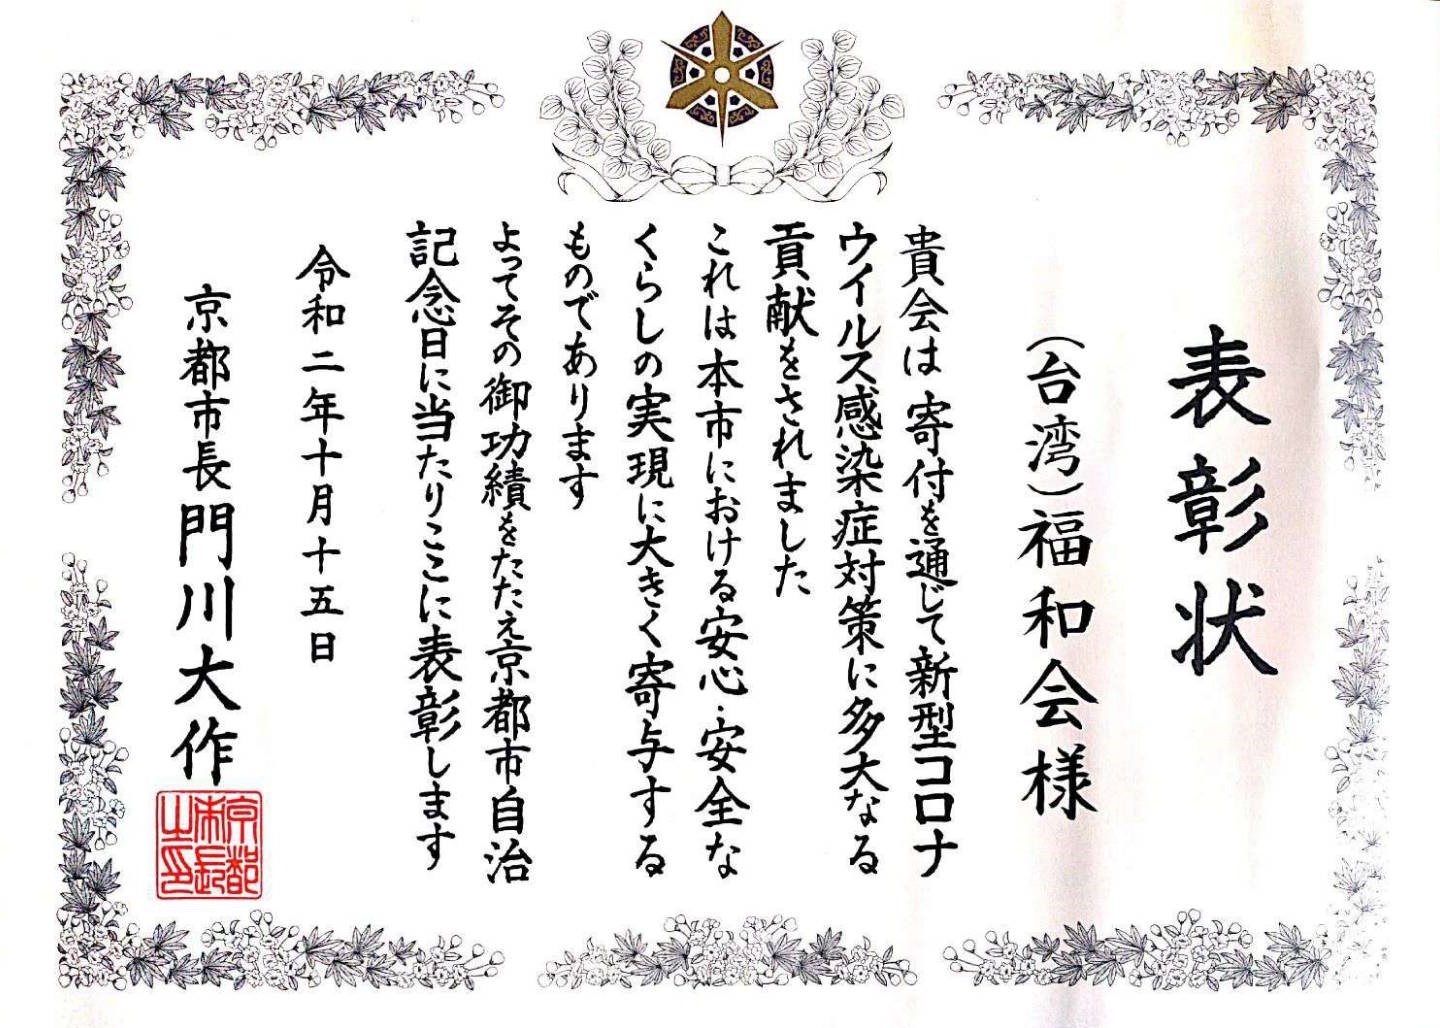 表彰状
(台湾)福和会様
貴会は寄付を通じて新型コロナ
ウイルス感染症対策に多大なる
貢献をされました
これは本市における安心・安全な
くらしの実現に大きく寄与する
ものであります
よってその御功績をたたえ京都市自治
記念日に当たりここに表彰します
令和二年十月十五日
京都市長門川大作
京都
市長
之印